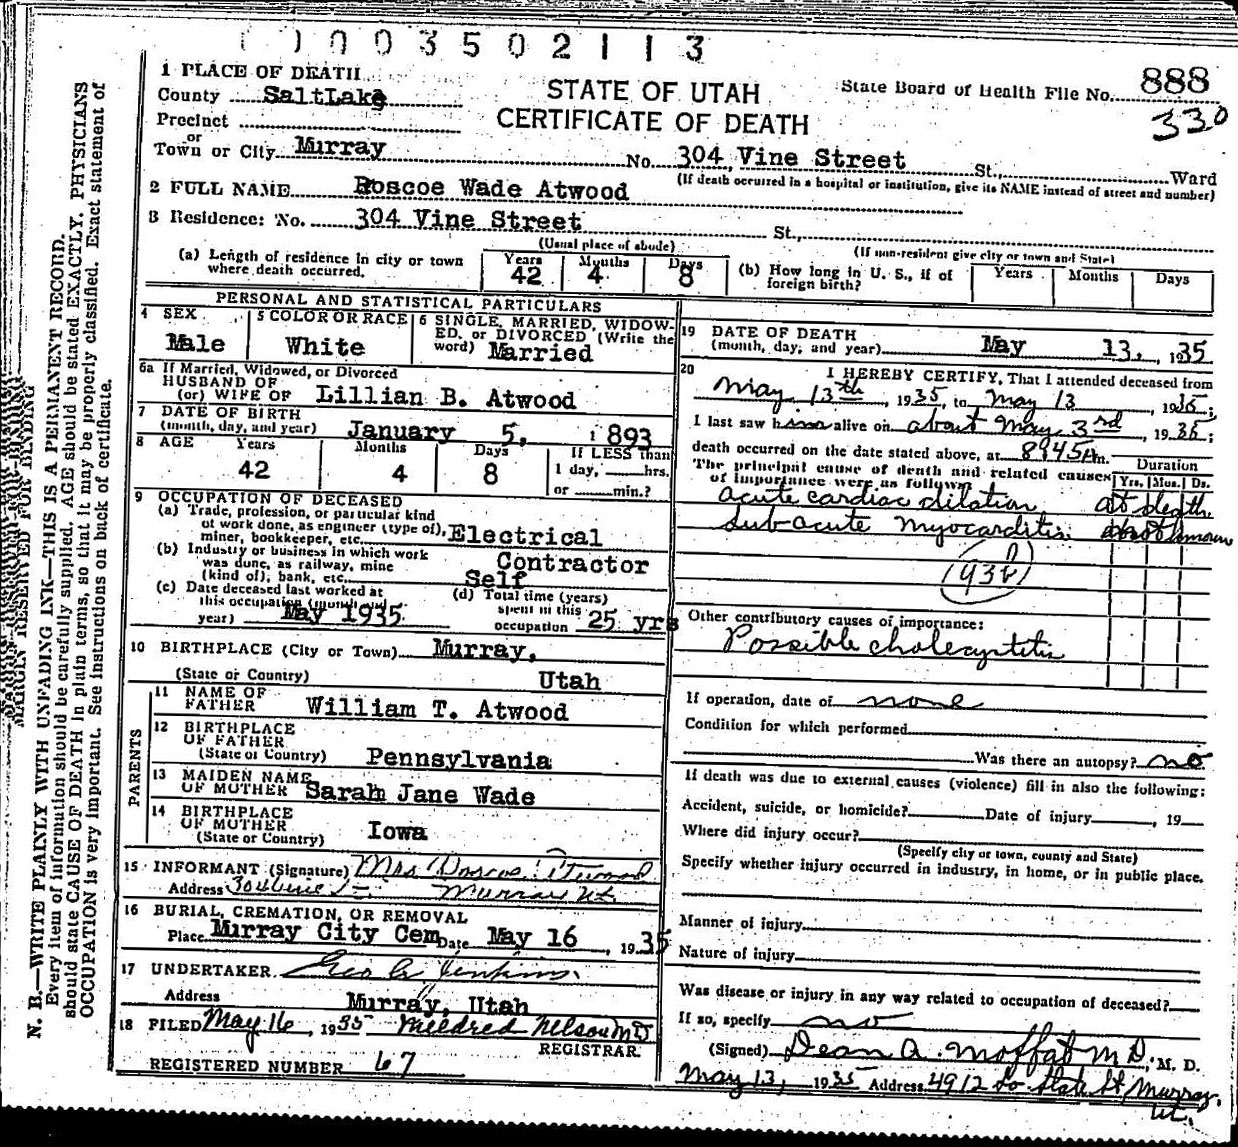 0 0 3 5 0 2 1 1 3
1 PLACE OF DEATH
County SaltLake
Precinct
or
Town or City Murray
STATE OF UTAH
CERTIFICATE OF DEATH
State Board of Health File No. 888
330
No. 304 Vine Street St., Ward
(If death occurred in a hospital or institution, give its NAME instead of street and number)
2 FULL NAME Roscoe Wade Atwood
3 Residence: No. 304 Vine Street St.,
(Usual place of abode) (If non-resident give city or town and State)
(a) Length of residence in city or town where death occurred. Years 42 Months 4 Days 8
(b) How long in U. S., if of foreign birth? Years Months Days
PERSONAL AND STATISTICAL PARTICULARS
4 SEX Male
5 COLOR OR RACE White
6 SINGLE, MARRIED, WIDOW-
ED, or DIVORCED (Write the
word) Married
6a If Married, Widowed, or Divorced
HUSBAND OF
(or) WIFE OF Lillian B. Atwood
7 DATE OF BIRTH
(month, day, and year) January 5, 1893
8 AGE Years 42 Months 4 Days 8
If LESS than
1 day, hrs.
or min.?
9 OCCUPATION OF DECEASED
(a) Trade, profession, or particular kind
of work done, as engineer (type of),
miner, bookkeeper, etc. Electrical
(b) Industry or business in which work Contractor
was done, as railway, mine
(kind of), bank, etc. Self
(c) Date deceased last worked at
this occupation (month and
year) May 1935
(d) Total time (years)
spent in this
occupation 25 yrs
10 BIRTHPLACE (City or Town) Murray,
(State or Country) Utah
PARENTS
11 NAME OF
FATHER William T. Atwood
12 BIRTHPLACE
OF FATHER
(State or Country) Pennsylvania
13 MAIDEN NAME
OF MOTHER Sarah Jane Wade
14 BIRTHPLACE
OF MOTHER
(State or Country) Iowa
15 INFORMANT (Signature) Mrs Roscoe Atwood
Address Murray Ut.
16 BURIAL, CREMATION, OR REMOVAL
Place Murray City Cem Date May 16, 1935
17 UNDERTAKER Geo Jenkins.
Address Murray, Utah
18 FILED May 16, 1935 Mildred Nelson MD
REGISTRAR.
REGISTERED NUMBER 67
19 DATE OF DEATH
(month, day, and year) May 13, 1935
20 I HEREBY CERTIFY, That I attended deceased from
May 13th, 1935, to May 13, 1935;
I last saw h alive on about May 3rd, 1935;
death occurred on the date stated above, at 8:45 A m.
The principal cause of death and related causes
of importance were as follows
Duration
Yrs. Mos. Ds.
acute cardiac dilation at death
Sub acute myocarditis
Other contributory causes of importance:
Possible cholecystitis
If operation, date of none
Condition for which performed
Was there an autopsy? no
If death was due to external causes (violence) fill in also the following:
Accident, suicide, or homicide? Date of injury , 19
Where did injury occur?
(Specify city or town, county and State)
Specify whether injury occurred in industry, in home, or in public place.
Manner of injury
Nature of injury
Was disease or injury in any way related to occupation of deceased?
If so, specify no
(Signed) Dean A. Moffat M D, M. D.
May 13, 1935 Address 4912 So State St Murray, Ut.
MARGIN RESERVED FOR BINDING
N. B.—WRITE PLAINLY WITH UNFADING INK—THIS IS A PERMANENT RECORD.
Every item of information should be carefully supplied. AGE should be stated EXACTLY. PHYSICIANS
should state CAUSE OF DEATH in plain terms, so that it may be properly classified. Exact statement of
OCCUPATION is very important. See instructions on back of certificate.